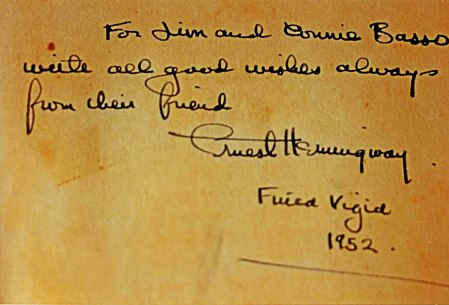 For Jim and Connie Basso
with all good wishes always
from their friend
Ernest Hemingway.
Finca Vigia
1952.